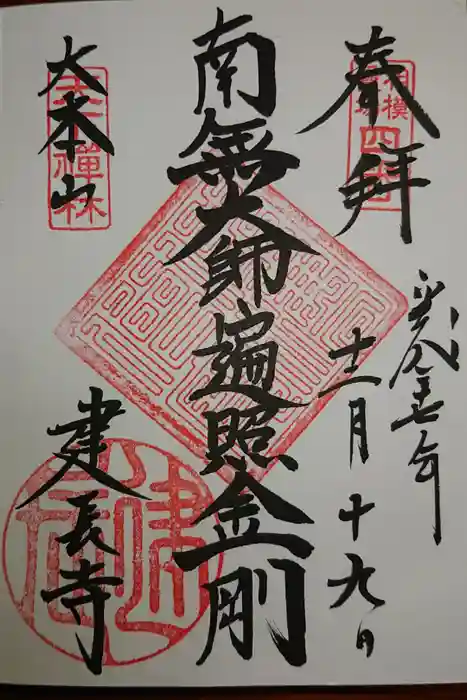 奉拝
平成廿七年
十二月十九日
南無大師遍照金剛
大本山
建長寺
天下禪林
相模